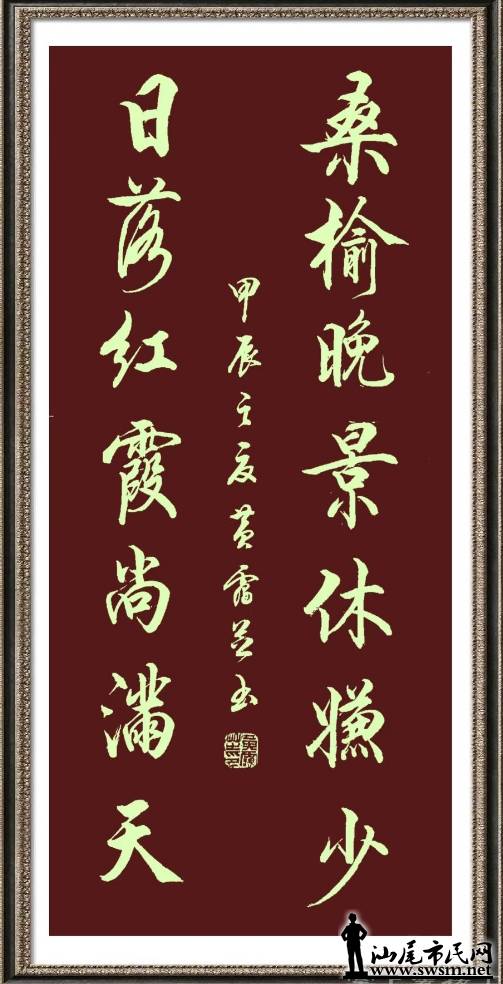 桑榆晚景休嫌少
日落红霞尚满天
甲辰之夏黄霭芸书
汕尾市民网
www.swsm.net